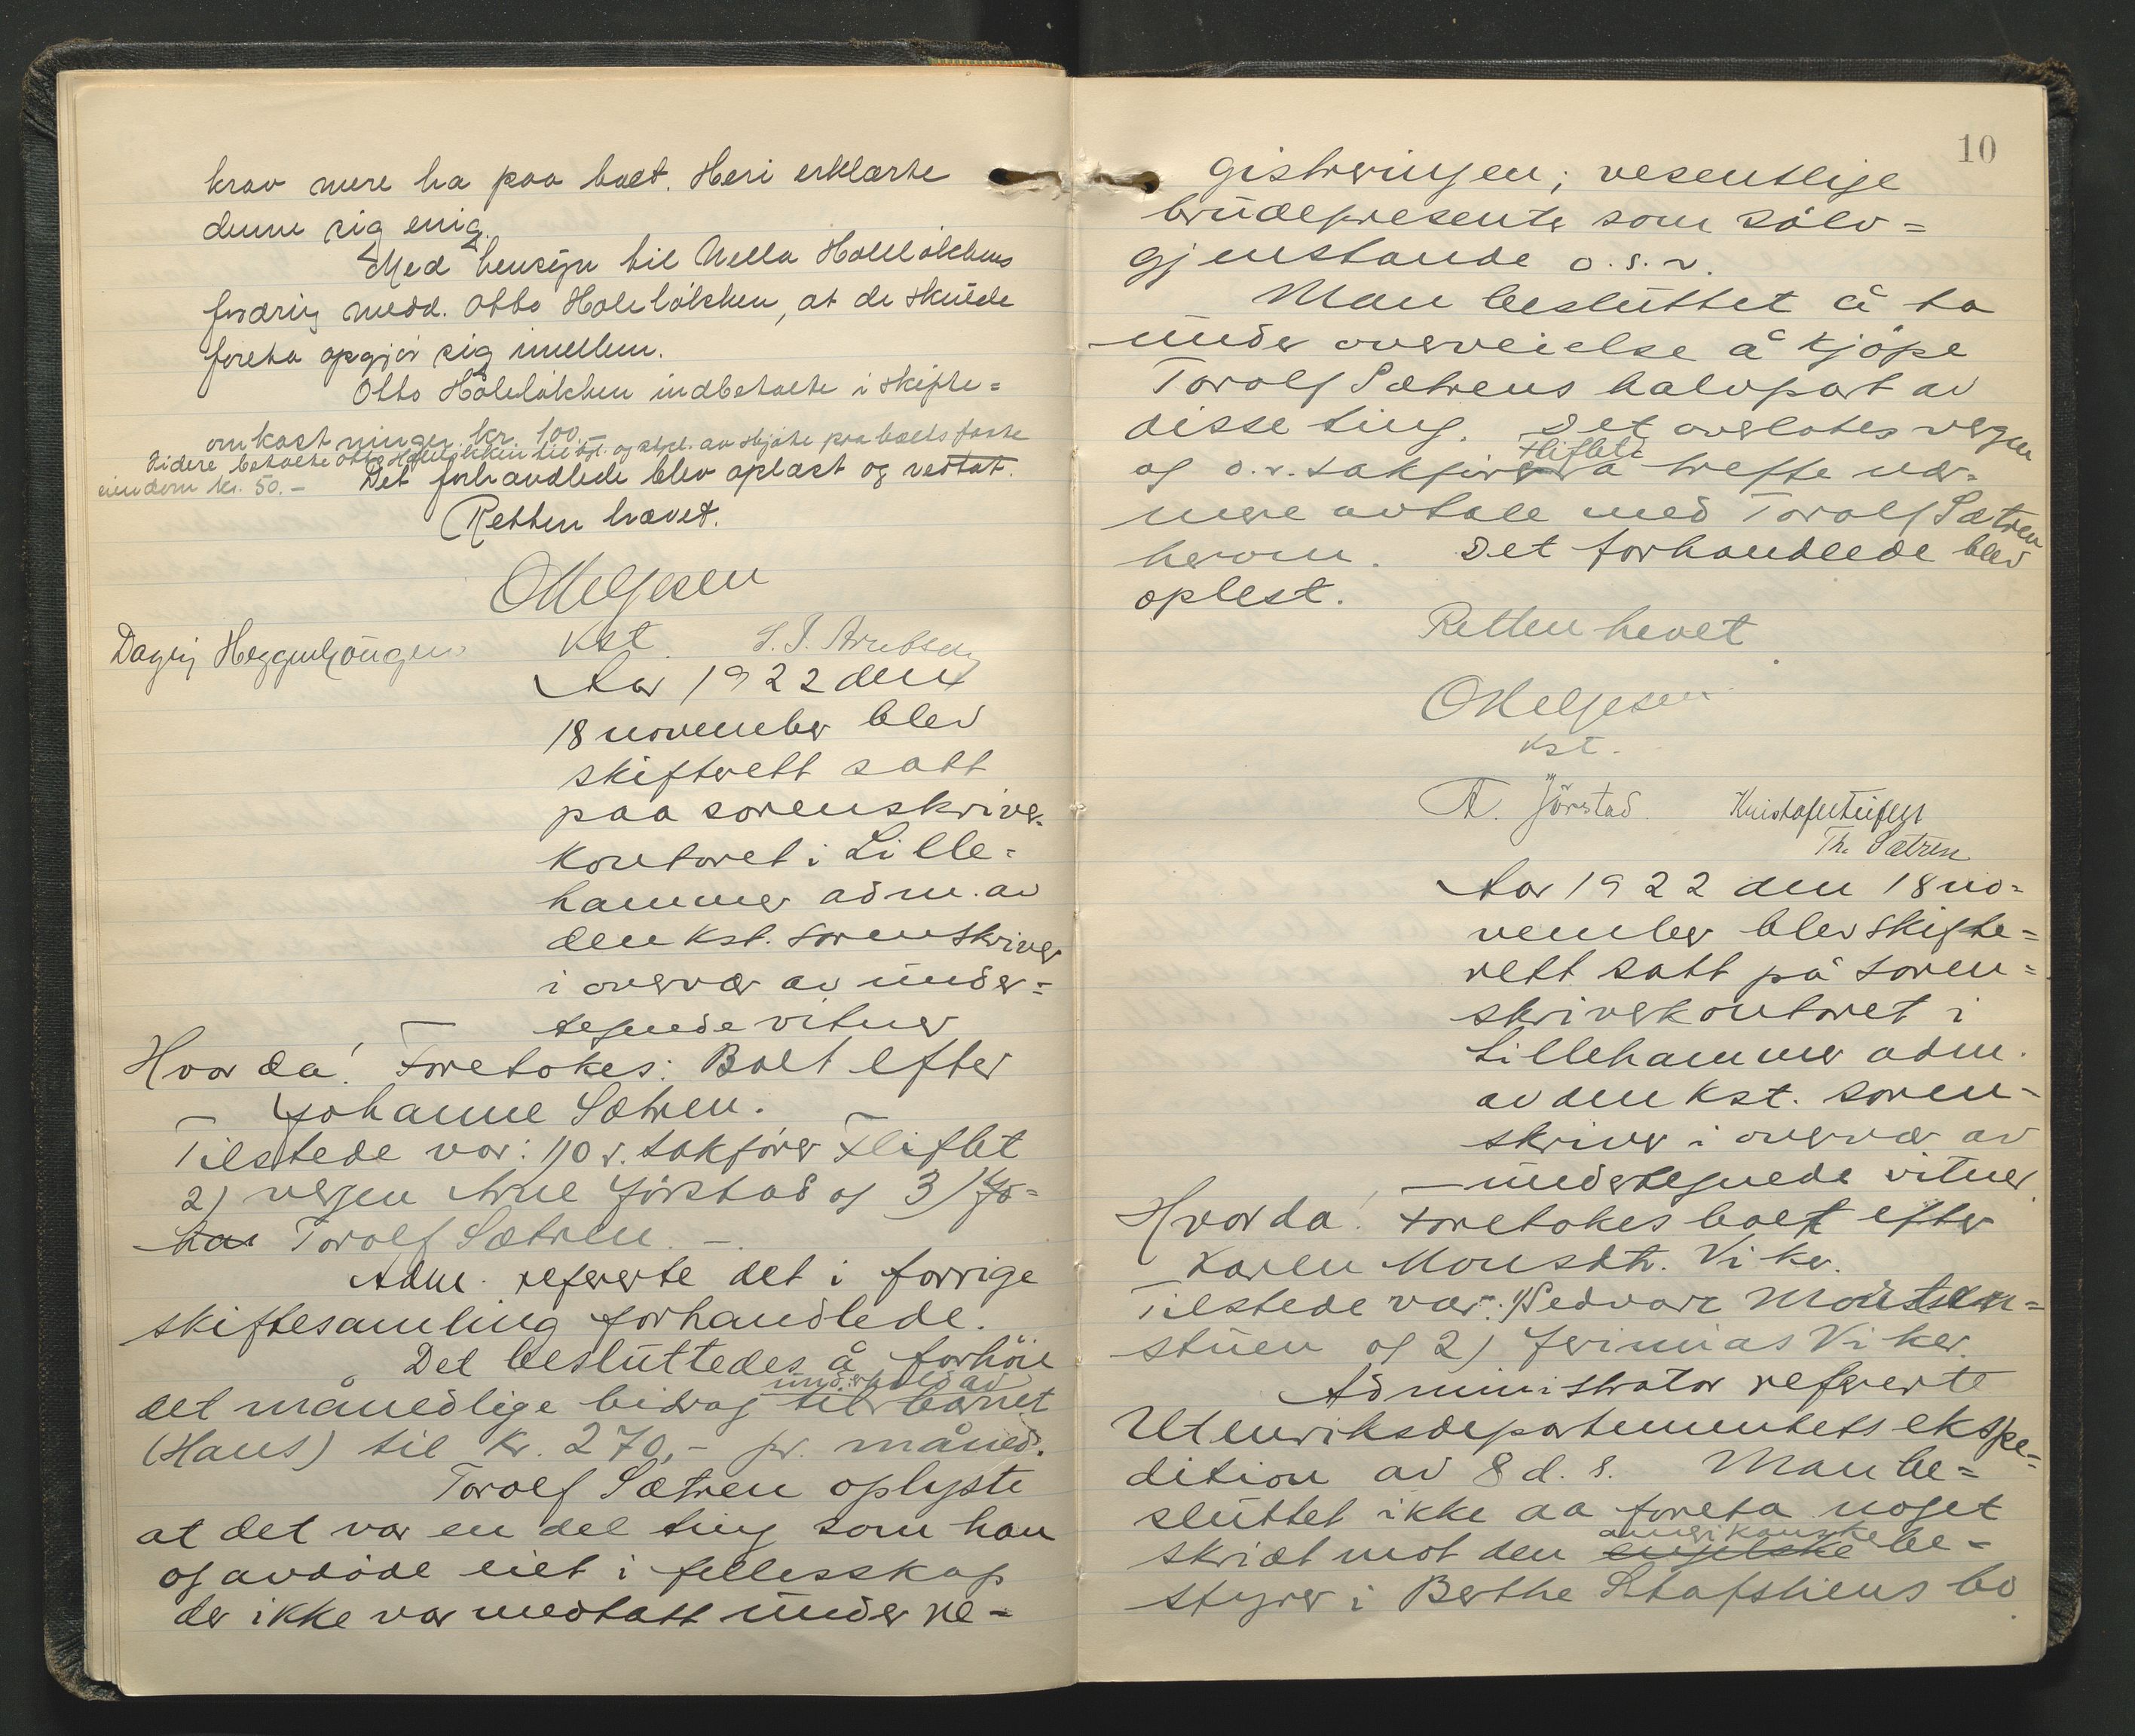 krav mere ha paa boet. Heri erklærte
denne sig enig.
Med hensyn til Nella Holelökkens
fordring medd. Otto Holelökken, at de skulde
foreta opgjör sig imellem.
Otto Holelökken indbetalte i skifte=
omkostninger kr. 100.-
Videre betalte Otto Holelökken til tgl. og stpl. av skjöte paa boets faste
eiendom kr. 50.-
Det forhandlede blev oplæst og vedtat.
Retten hævet.
O Helgesen
Kst.
Dagny Heggenhougen
Aar 1922 den
18 november blev
skifterett satt
paa sorenskriver-
kontoret i Lille=
hammer adm. av
den kst. sorenskriver
i overvær av under=
tegnede vitner
Hvorda! Foretokes: Boet efter
Johanne Sætren.
Tilstede var: 1) O.r. sakförer Fliflet
2) vergen Arne Jörstad og 3) Jo=
han Torolf Sætren. -
Adm. refererte det i forrige
skiftesamling forhandlede.
Det besluttedes å forhöie
underhold av
det månedlige bidrag til barnet
(Hans) til kr. 270,- pr. måned.
Torolf Sætren oplyste
at det var en del ting som han
og avdöde eiet i fellesskap
der ikke var medtatt under re-
10
gistreringen; vesentlige
brudepresenter som sölv=
gjenstande o.s.v.
Man besluttet å ta
under overveielse å kjöpe
Torolf Sætrens halvpart av
disse ting. Det overlotes vergen
Fliflet
og o.r. sakförer å treffe nær-
mere avtale med Torolf Sætren
herom. Det forhandlede blev
oplest.
Retten hevet
O Helgesen
kst.
A. Jörstad.
Th. Sætren
Aar 1922 den 18 no=
vember blev skifte=
rett satt på soren=
skriverkontoret i
Lillehammer adm.
av den kst. soren-
skriver i overvær av
undertegnede vitner
Hvorda! Foretokes boet efter
Karen Monsdtr. Viker.
Tilstede var: 1) Sedvare
stuen og 2) Jerimias Viker.
Administrator refererte
Utenriksdepartementets ekspe=
dition av 8 d. s. Man be=
sluttet ikke aa foreta noget
amerikanske
skridt mot den engelske be=
styrer i Berthe Stafstiens bo.